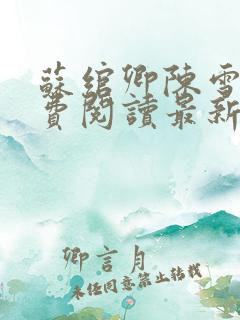 蘇綰卿陳雪
費閱讀最新
卿言月
未任同意禁止转载